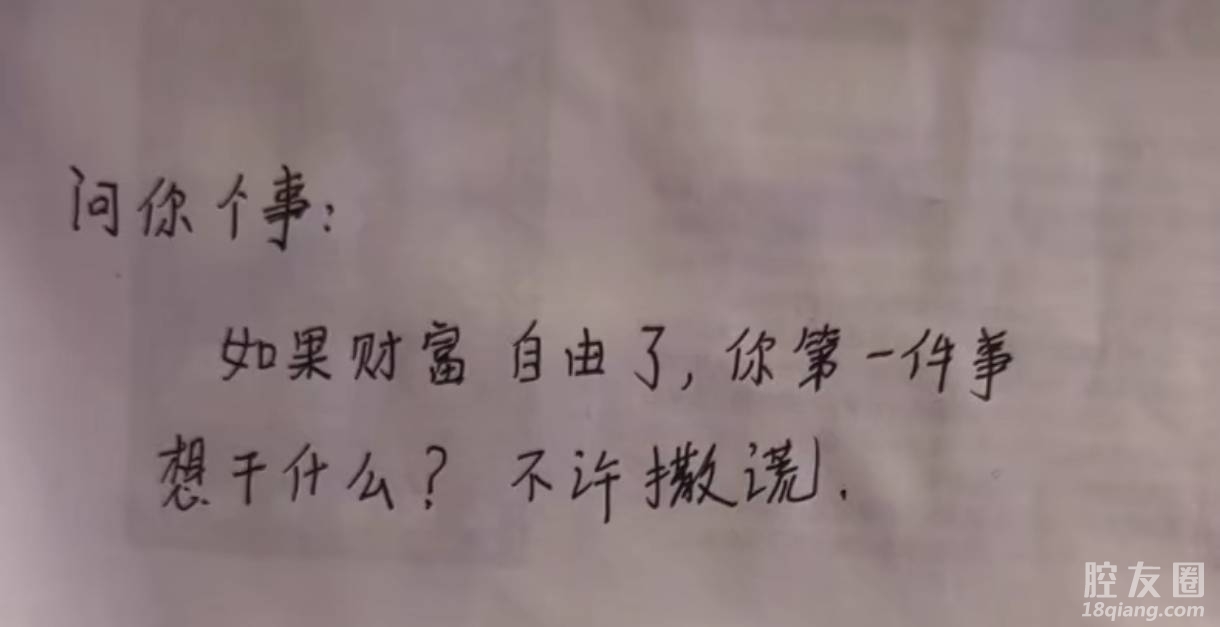 问你个事:
如果财富自由了,你第一件事
想干什么? 不许撒谎.
腔友圈
18qiang.com